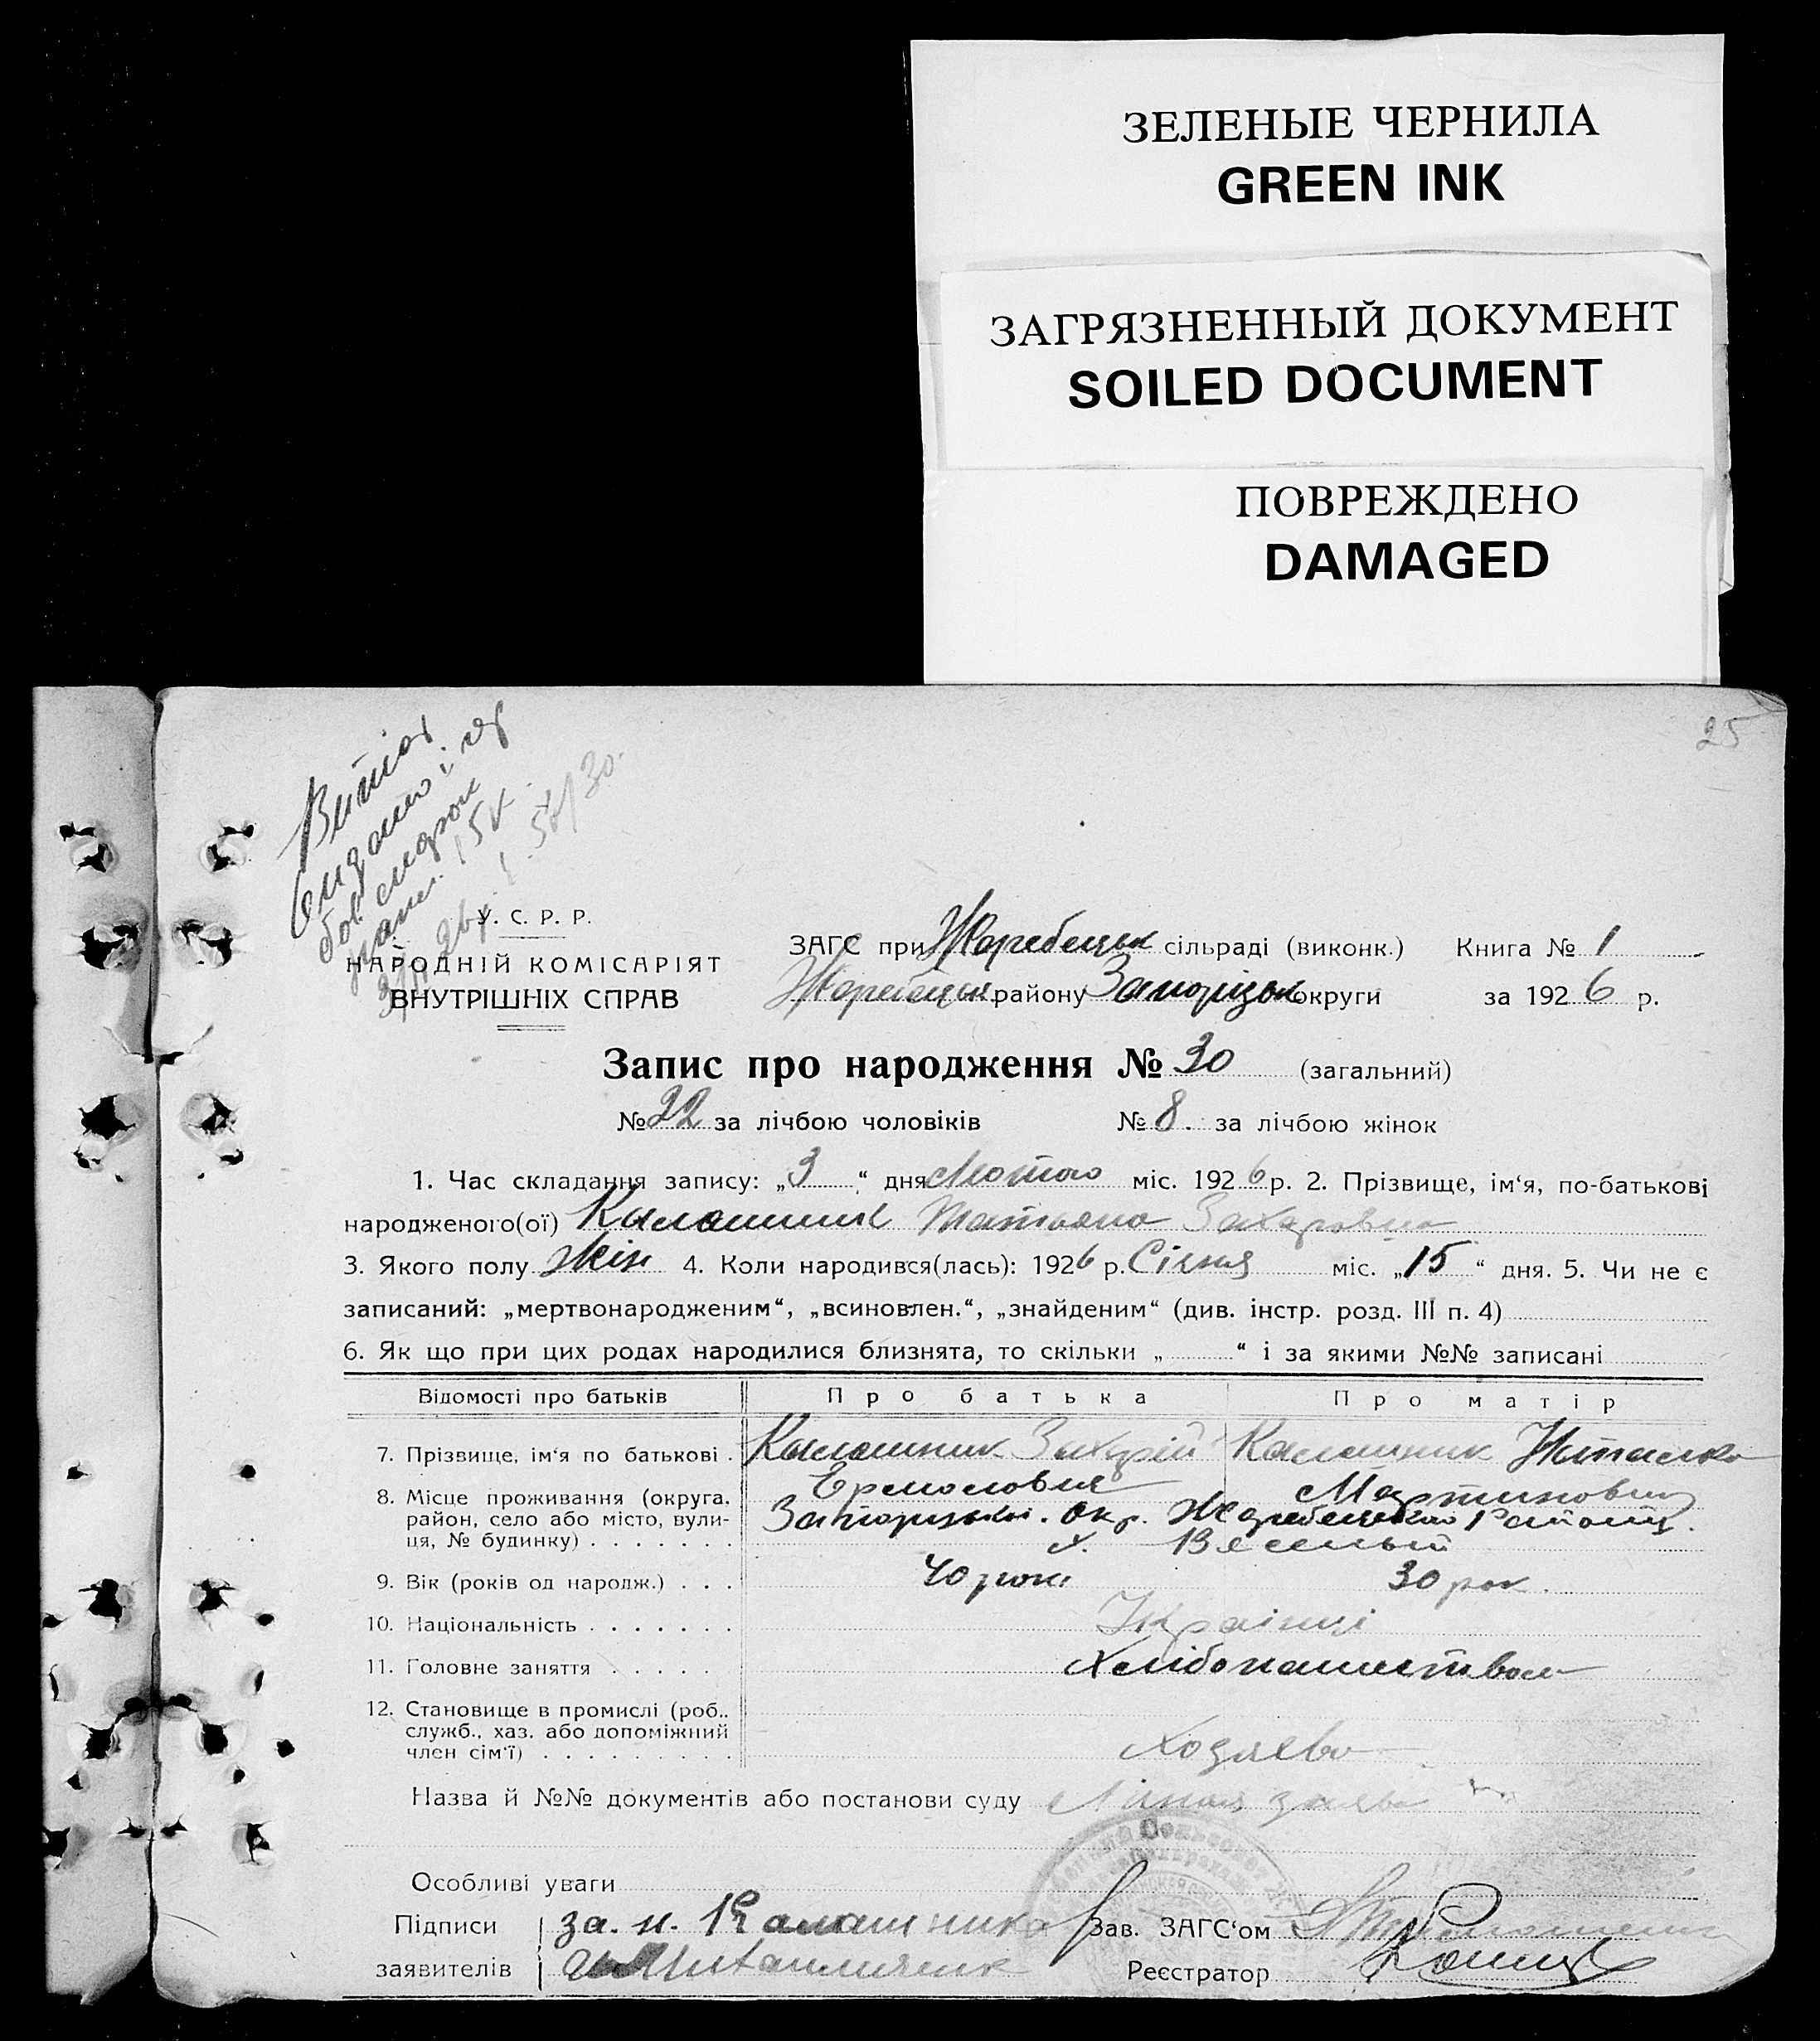 ЗЕЛЕНЫЕ ЧЕРНИЛА
GREEN INK
ЗАГРЯЗНЕННЫЙ ДОКУМЕНТ
SOILED DOCUMENT
ПОВРЕЖДЕНО
DAMAGED
25
У. С. Р. Р.
НАРОДНІЙ КОМІСАРІЯТ
ВНУТРІШНІХ СПРАВ
ЗАГС при Жеребецьк сільраді (виконк.) Книга № 1
Жеребецьк району Запорізьк округи за 1926 р.
Запис про народження № 30 (загальний)
№ 22 за лічбою чоловіків № 8. за лічбою жінок
1. Час складання запису: „3“ дня Лютого міс. 1926 р. 2. Прізвище, ім‘я, по-батькові
народженого(ої) Калашник Татьяна Захаровна
3. Якого полу жін 4. Коли народився(лась): 1926 р. Січня міс. „15“ дня. 5. Чи не є
записаний: „мертвонародженим“, „всиновлен.“, „знайденим“ (див. інстр. розд. III п. 4)
6. Як що при цих родах народилися близнята, то скільки „ “ і за якими №№ записані
Відомості про батьків Про батька Про матір
7. Прізвище, ім‘я по батькові . Калашник Захарій Калашник
8. Місце проживання (округа, район, село або місто, вулиця, № будинку) . . . . . . . Запорізькі. окр. Жеребецького
х.
9. Вік (років од народж.) . . . 40 рокі 30 рок.
10. Національність . . . . . . . Українці
11. Головне заняття . . . . . Хлібопашество
12. Становище в промислі (роб., служб., хаз. або допоміжний член сім‘ї) . . . . . . . . . Хозяева
Назва й №№ документів або постанови суду заява
Особливі уваги
Підписи за. н. Калашника Зав. ЗАГС‘ом
заявителів Реєстратор